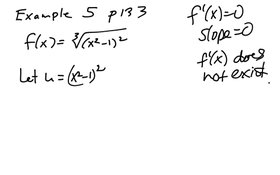 Example 5 p133
f(x) = ∛(x²-1)²
Let u = (x²-1)²
f'(x)=0
slope=0
f'(x) does
not exist.